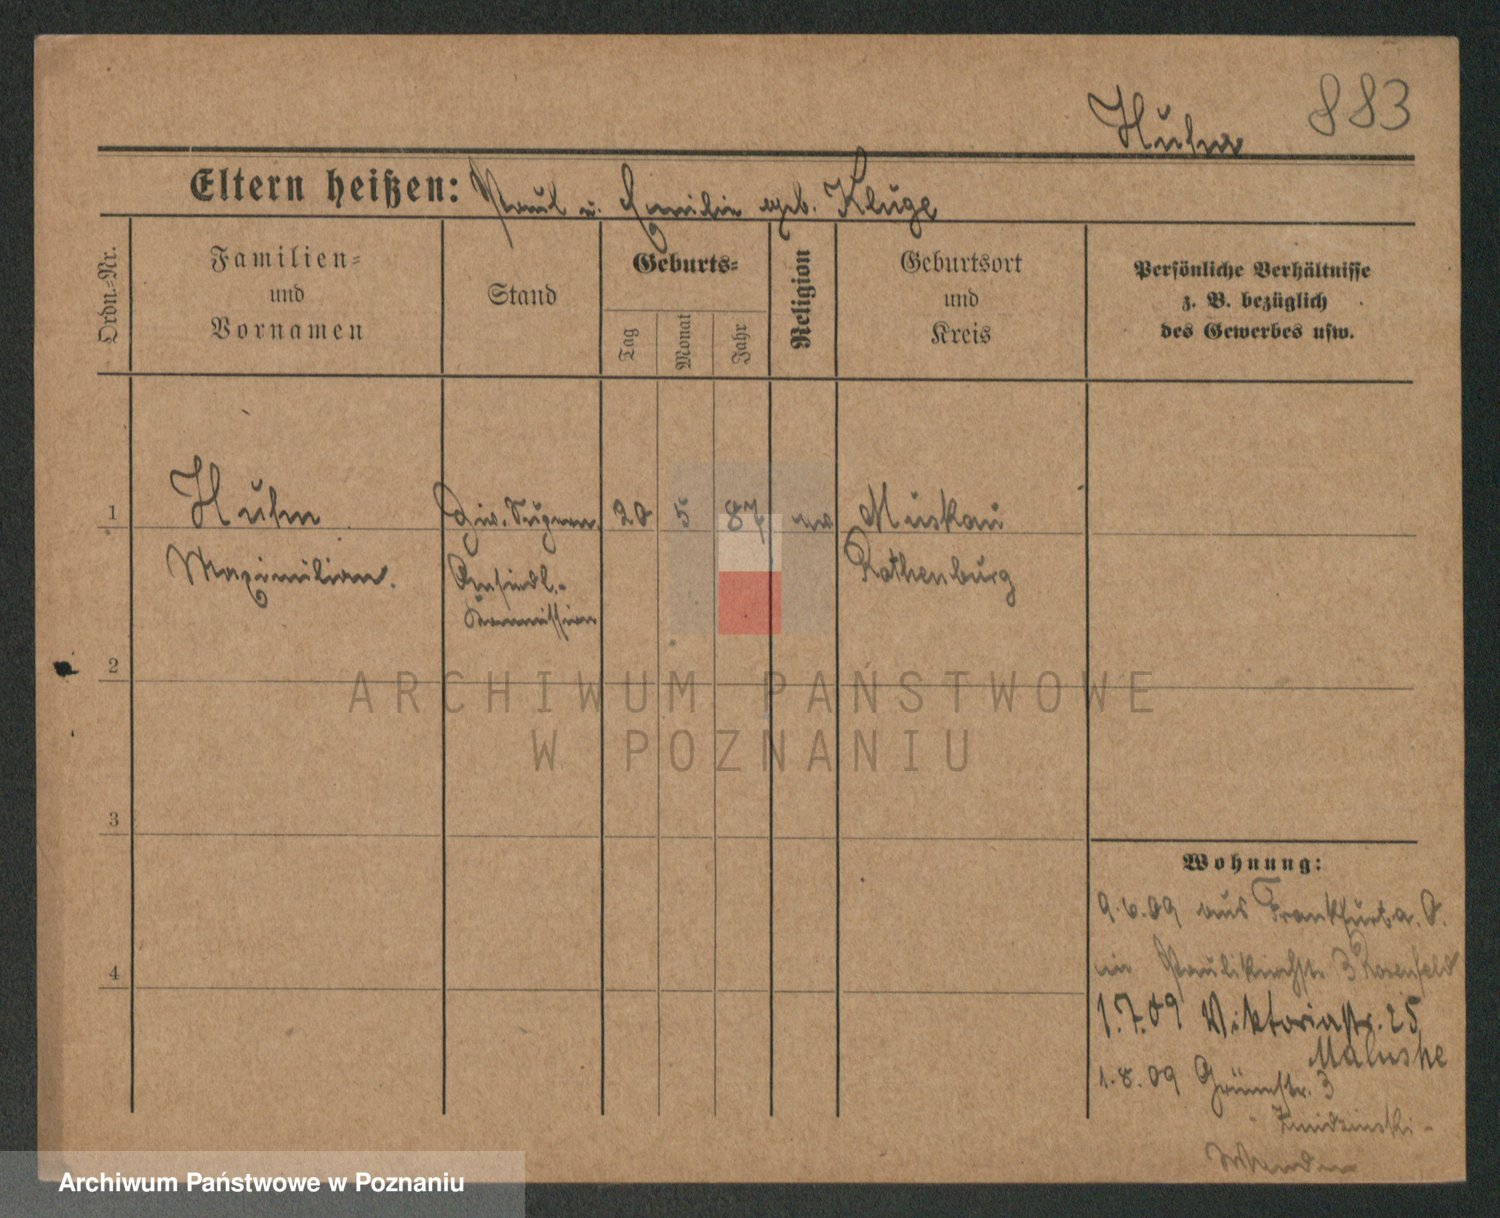 Huhn 883
Eltern heißen: Paul u. Emilie geb. Kluge
Ordn.-Nr.
Familien-
und
Vornamen
Stand
Geburts-
Tag
Monat
Jahr
Religion
Geburtsort
und
Kreis
Persönliche Verhältnisse
z. B. bezüglich
des Gewerbes usw.
1 Huhn 20 5 87 Muskau
Maximilian. Ansiedl.- Rothenburg
Kommission
2
ARCHIWUM PAŃSTWOWE
W POZNANIU
3
Wohnung:
9.6.09 aus Frankfurt a. O.
Paulikirchstr. 3 Rosenfeld
4
1.7.09 Viktoriastr. 25
Maluske
1.8.09 Grünestr. 3
Archiwum Państwowe w Poznaniu